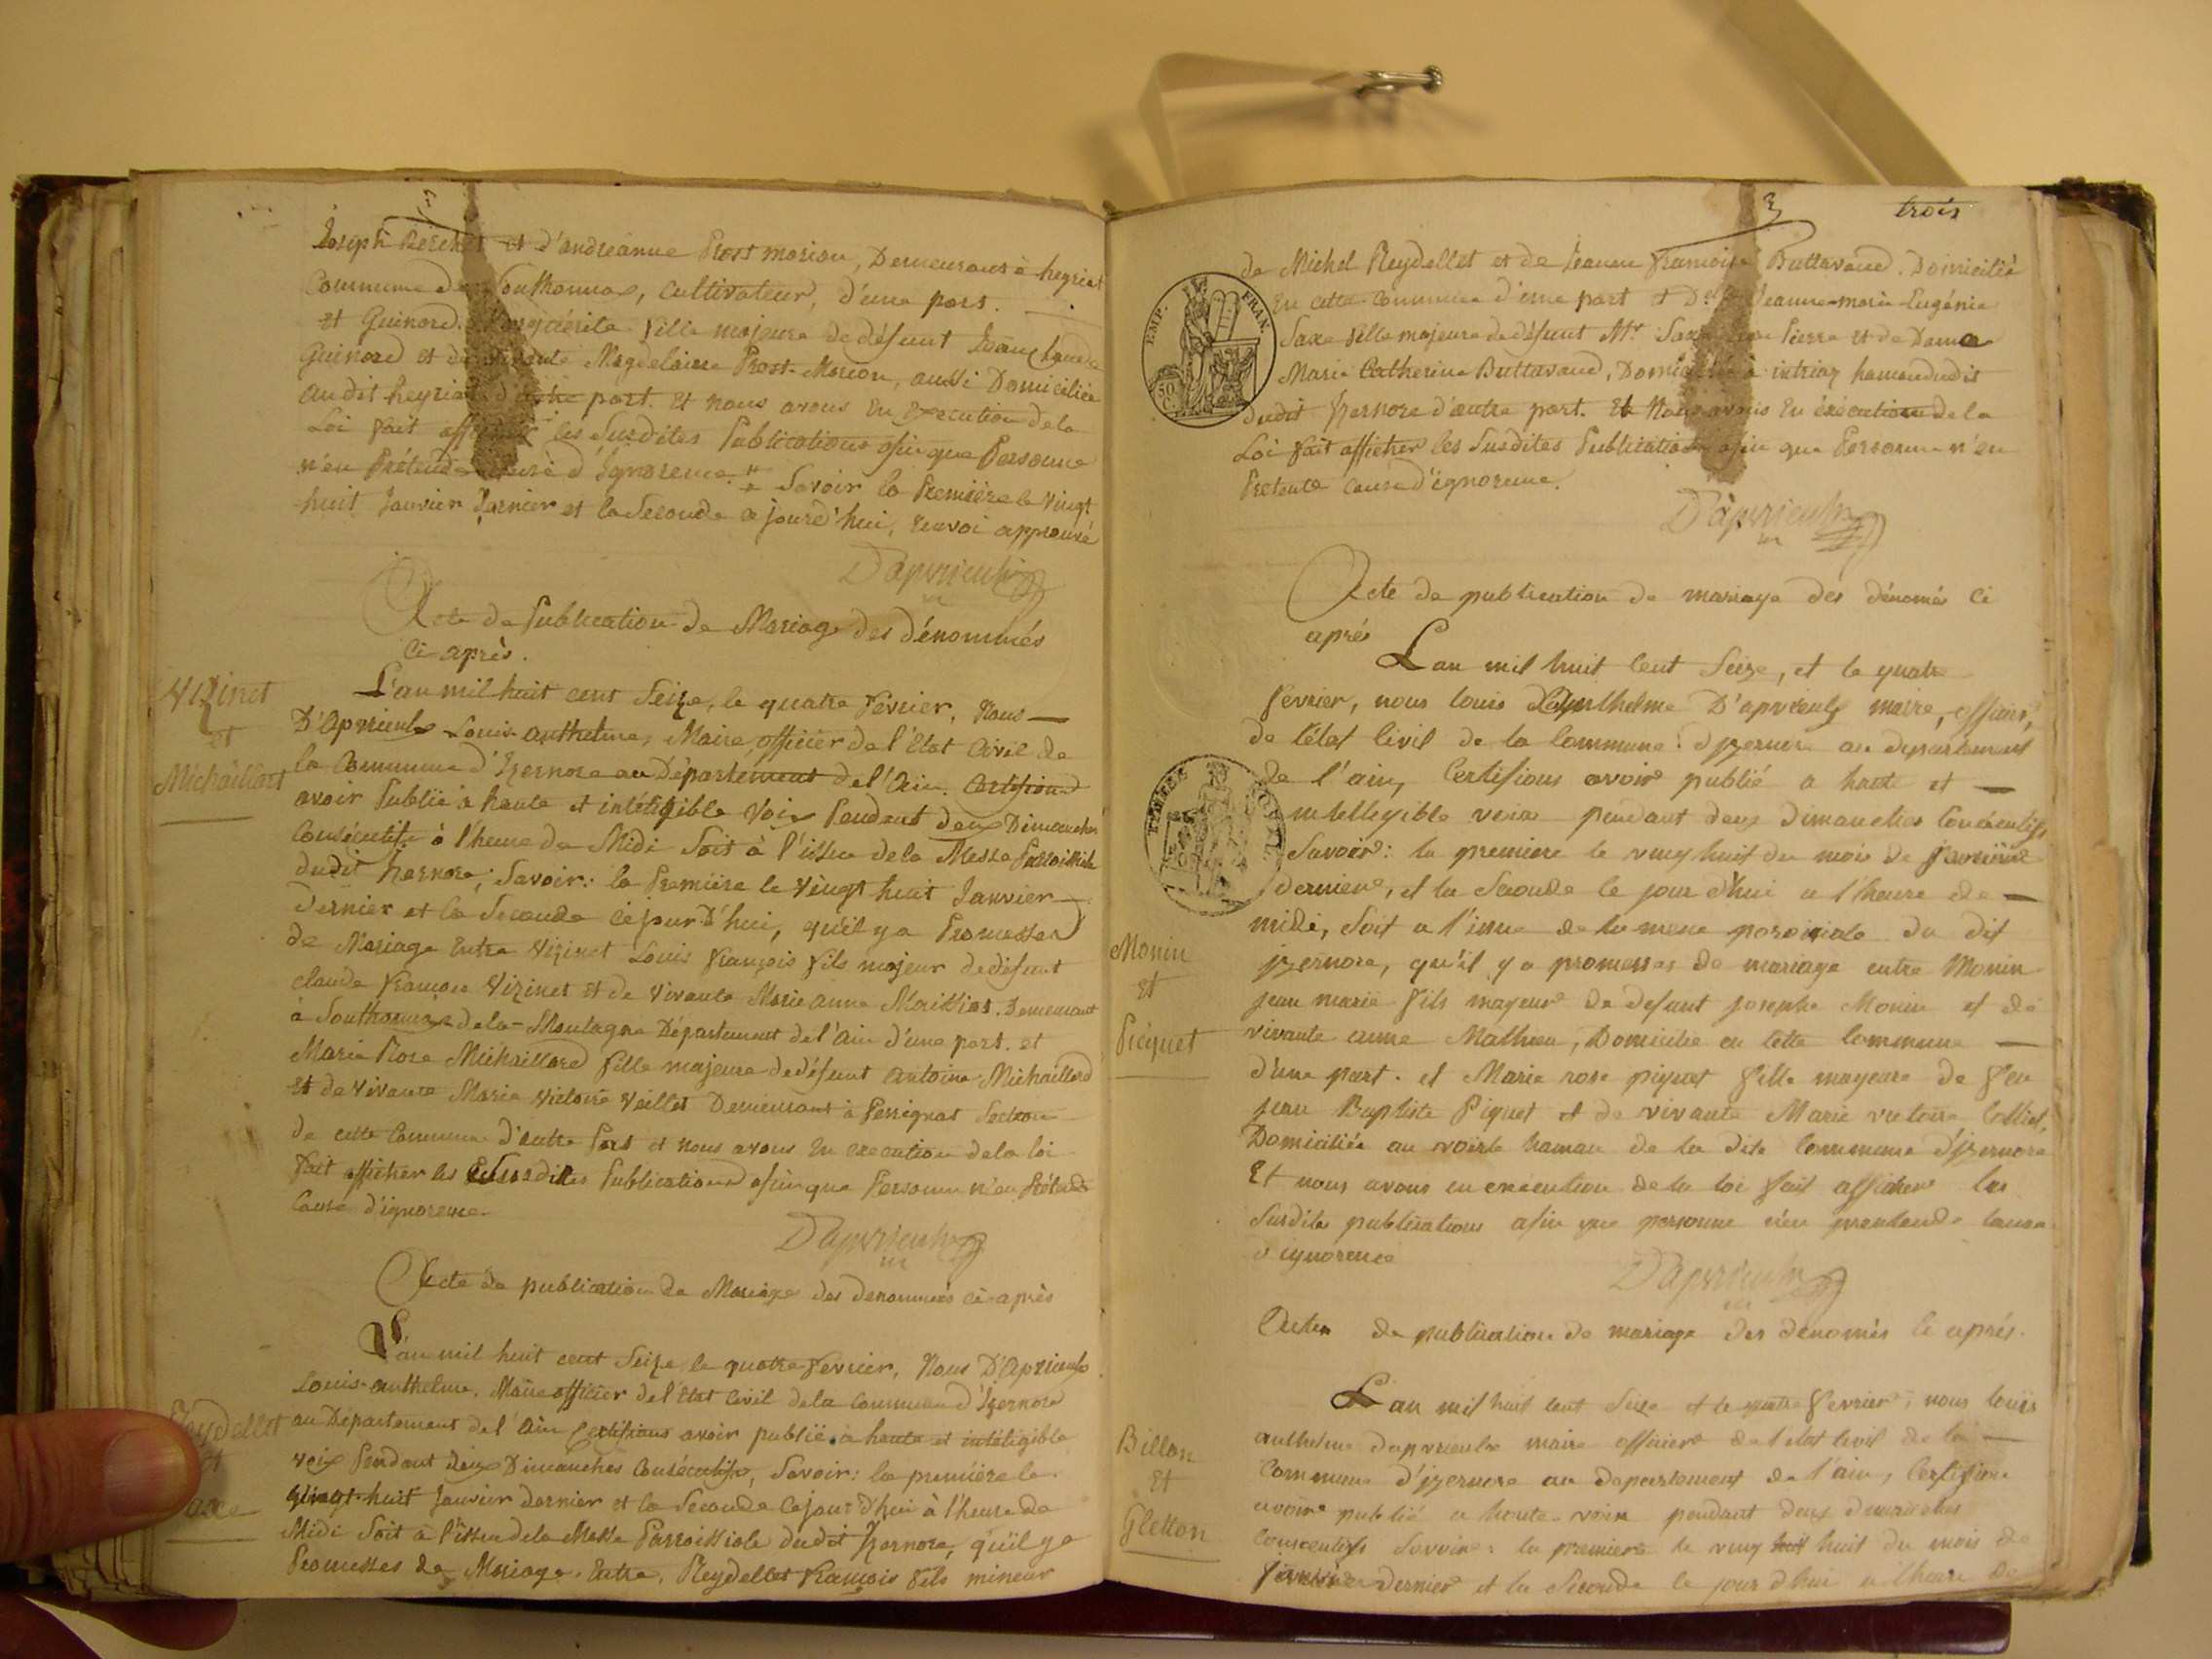 Joseph et d'andréanne Prost morion, Demeurant à heyriat
Commune de Southonnax, Cultivateur, d'une part.
et Guinard fille majeure de défunt Jean Claude
Guinard et de vivante Magdelaine Prost-Morion, aussi Domiciliée
audit heyriat d'autre part. Et nous avons en Execution de la
Loi fait afficher les Susdites Publications afin que Personne
n'en Prétende cause d'Ignorence. Savoir la Première le Vingt
huit Janvier Dernier et la Seconde ce jourd'hui, renvoi approuvé
Acte de Publication de Mariage des dénommés
Ci-après.
Vizinet
et
Michaillard
L'an mil huit cent Seize, le quatre Février, Nous
Louis-Anthelme, Maire, officier de l'Etat Civil de
la Commune d'Izernore au Département de l'Ain. Certifions
avoir Publié à haute et intéligible Voix Pendant deux Dimanches
Consécutifs à l'heure de Midi Soit à l'issue de la Messe Paroissiale
dudit Izernore; Savoir: la Première le Vingt huit Janvier
Dernier et la Seconde ce jour D'hui, qu'il y a Promesses
de Mariage Entre Vizinet Louis François fils majeur de défunt
Claude François Vizinet et de Vivante Marie anne Demeurant
à Southonnax de la-Montagne Département de l'Ain d'une part. et
Marie Rose Michaillard fille majeure de défunt Antoine Michaillard
et de Vivante Marie Victoire Veillet Demeurant à Perrignat Section
de cette Commune d'autre Part et nous avons En execution de la loi
fait afficher les Susdites Publications afin que Personne n'en Prétende
Cause d'ignorence.
Acte de publication de Mariage des denommés ci-après
Reydellet
et
Saxe
L'an mil huit cent Seize le quatre Fevrier, Nous
Louis-anthelme, Maire officier de l'Etat Civil de la Commune d'Izernore
au Département de l'Ain Certifions avoir publié à haute et intéligible
voix Pendant deux Dimanches Consécutifs, Savoir: la première le
vingt-huit Janvier dernier et la Seconde ce jour d'hui à l'heure de
Midi Soit à l'issue de la Messe Parroissiale dudit Izernore, qu'il y a
Promesses de Mariage. Entre, Reydellet François fils mineur
3 trois
de Michel Reydellet et de Jeanne Françoise Buttavand. Domicilié
En cette Commune d'une part et Jeanne-marie-Eugénie
Saxe fille majeure de défunt Mr. Saxe Pierre et de Dame
Marie Catherine Buttavand, Domiciliée à intriaz hamaududit
dudit Izernore d'autre part. Et Nous avons En éxécution de la
Loi fait afficher les Susdites Publications afin que Personne n'en
Pretente cause d'ignorence.
EMP. FRAN.
50 C
Acte de publication de mariage des dénomés Ci
après
Monin
Et
Picquet
L'an mil huit Cent Seize, et le quatre
février, nous louis maire, officier,
de l'état Civil de la Commune: d'izernore au département
de l'ain, Certifions avoir publié a haute et
intellegible voix pendant deux dimanches Consécutifs
Savoir: la premiere le vingt huit du mois de Janvier
dernier, et la Seconde le jour d'hui a l'heure de
midi, Soit a l'issue de la messe paroisiale du dit
izernore, qu'il y a promesses de mariage entre Monin
jean marie fils mayeur de defunt josephe Monin et de
vivante anne Mathieu, Domicilie en Cette Commune
d'une part. et Marie rose piquet fille mayeure de feu
jean Baptiste Piquet et de vivante Marie victoire
Domiciliée au hamau de la dite Commune d'izernore
Et nous avons en exécution de la loi fait afficher les
Susdites publications afin que personne n'en prentende Cause
d'ignorence
Actes de publication de mariage des denomés Ci aprés.
Billon
Et
Gletton
L'an mil huit Cent Seize et le quatre fevrier, nous louis
anthelme maire officier de l'etat Civil de la
Commune d'izernore au departement de l'ain, Certifions
avoir publié a haute voix pendant deux dimanches
Consecutifs Savoir: la premiere le vingt huit du mois de
janvier dernier et la Seconde le jour d'hui a l'heure de